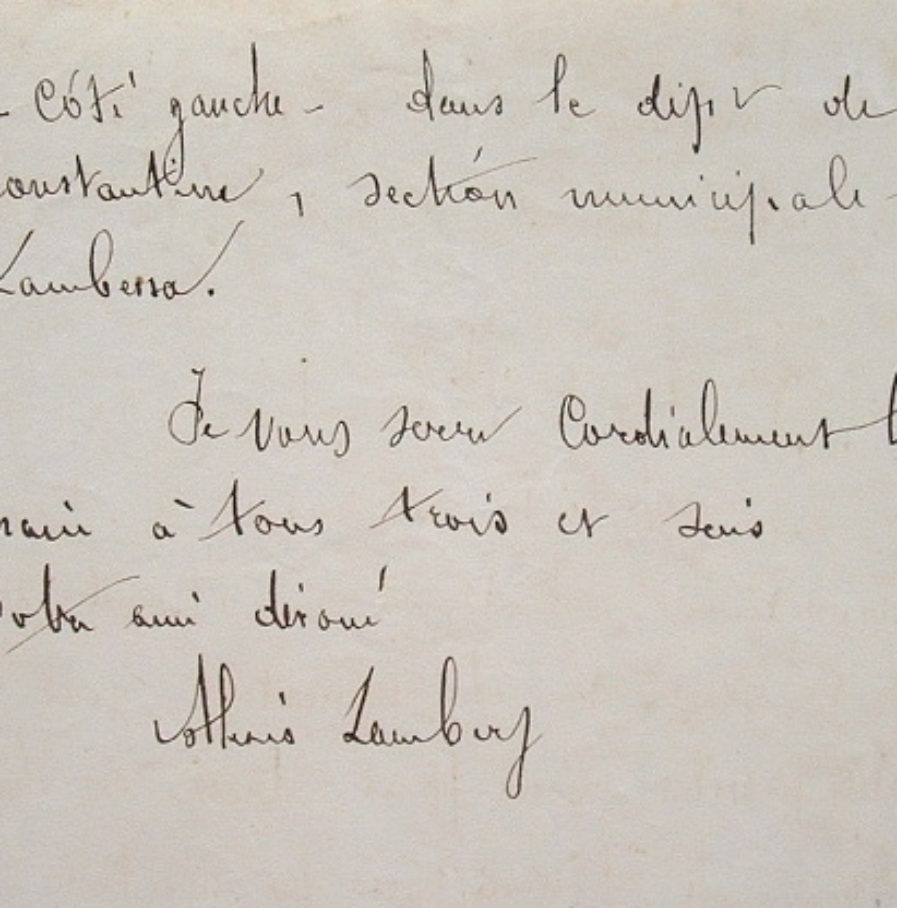 - Côté gauche - dans le dépt de
Constantine, section municipale -
Lambessa.
Je vous serre cordialement l
main à tous trois et suis
votre ami dévoué
Lambert